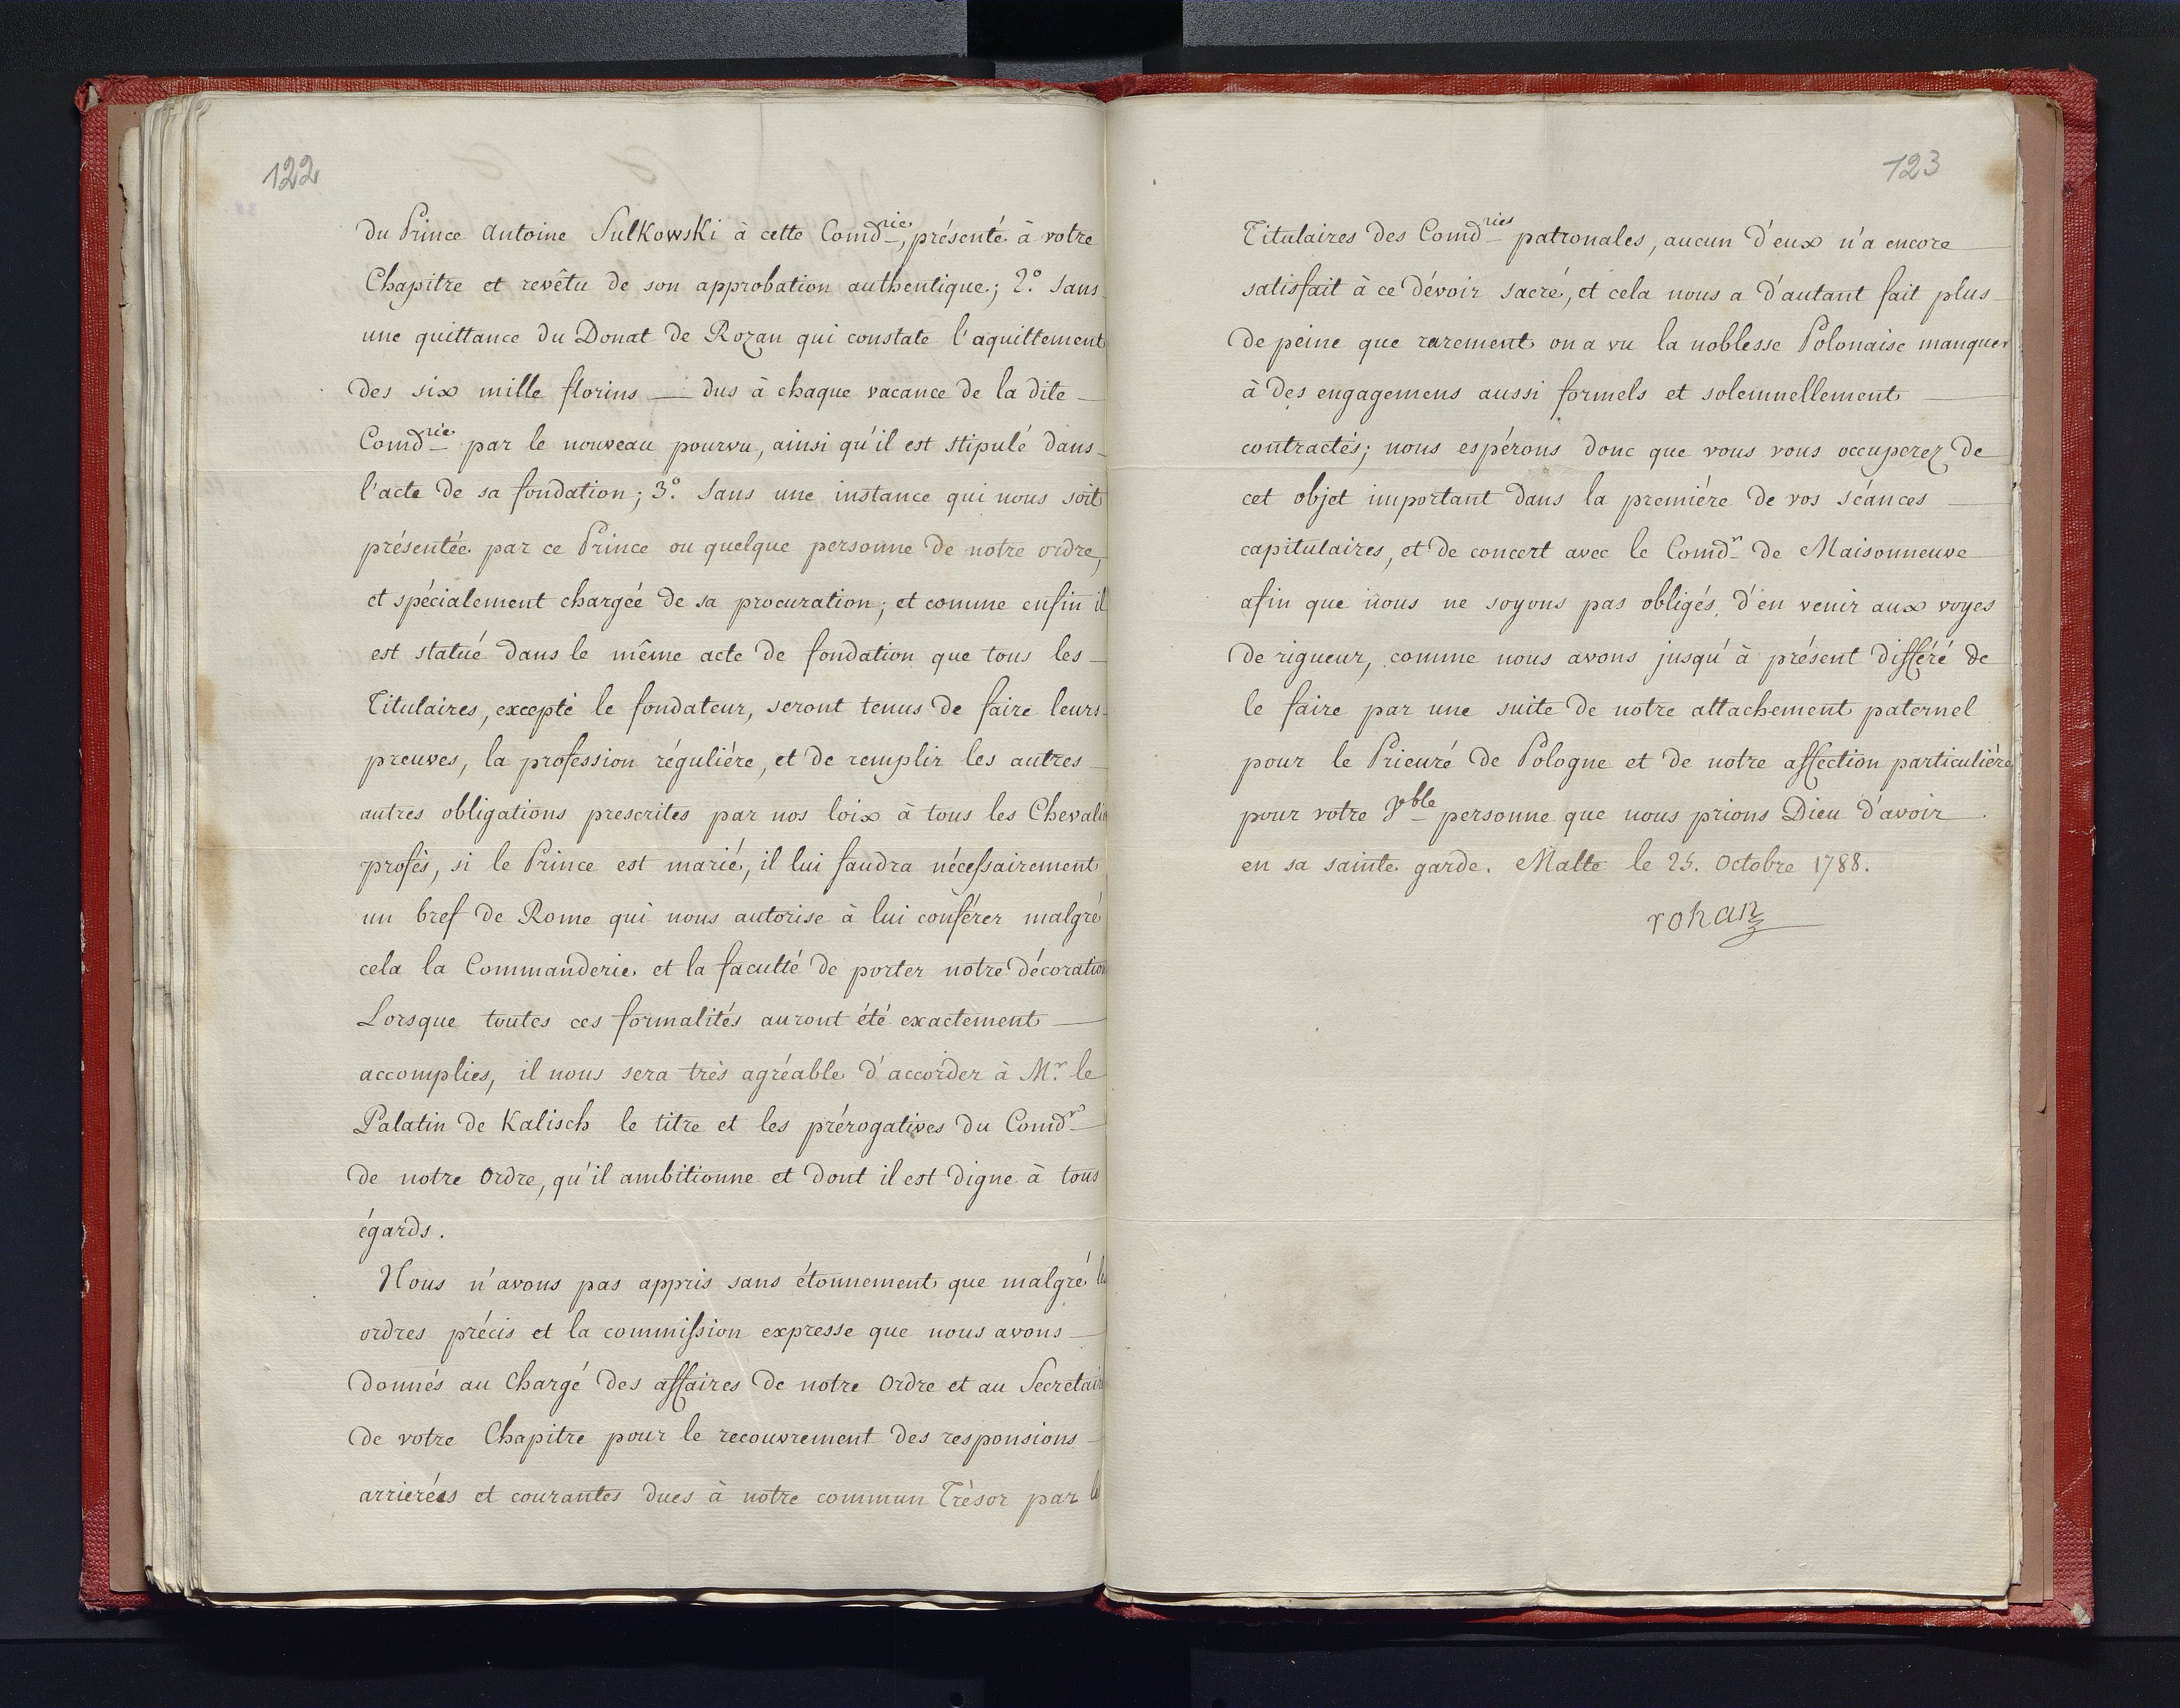 122
du Prince Antoine Sulkowski à cette Comd.rie, présenté à votre
Chapitre et revêtu de son approbation authentique; 2.º sans
une quittance du Donat de Rozan qui constate l'aquittement
des six mille florins — dus à chaque vacance de la dite
Comd.rie par le nouveau pourvu, ainsi qu'il est stipulé dans
l'acte de sa fondation; 3.º sans une instance qui nous soit
présentée par ce Prince ou quelque personne de notre ordre,
et spécialement chargée de sa procuration; et comme enfin il
est statué dans le même acte de fondation que tous les
Titulaires, excepté le fondateur, seront tenus de faire leurs
preuves, la profession réguliére, et de remplir les autres
autres obligations prescrites par nos loix à tous les Chevali
profés, si le Prince est marié, il lui faudra nécessairement
un bref de Rome qui nous autorise à lui conférer malgré
cela la Commanderie et la faculté de porter notre décoration
Lorsque toutes ces formalités auront été exactement
accomplies, il nous sera très agréable d'accorder à M.r le
Palatin de Kalisch le titre et les prérogatives du Comd.r
de notre Ordre, qu'il ambitionne et dont il est digne à tous
égards.
Nous n'avons pas appris sans étonnement que malgré les
ordres précis et la commission expresse que nous avons
donnés au Chargé des affaires de notre Ordre et au Secretair
de votre Chapitre pour le recouvrement des responsions
arrierées et courantes dues à notre commun Trèsor par le
123
Titulaires des Comd.ries patronales, aucun d'eux n'a encore
satisfait à ce dévoir sacré, et cela nous a d'autant fait plus
de peine que rarement on a vu la noblesse Polonaise manquer
à des engagemens aussi formels et solemnellement
contractés; nous espérons donc que vous vous occuperez de
cet objet important dans la premiére de vos séances
capitulaires, et de concert avec le Comd.r de Maisonneuve
afin que nous ne soyons pas obligés, d'en venir aux voyes
de rigueur, comme nous avons jusqu'à présent différé de
le faire par une suite de notre attachement paternel
pour le Prieuré de Pologne et de notre affection particuliére
pour votre V.ble personne que nous prions Dieu d'avoir
en sa sainte garde. Malte le 25. Octobre 1788.
rohan